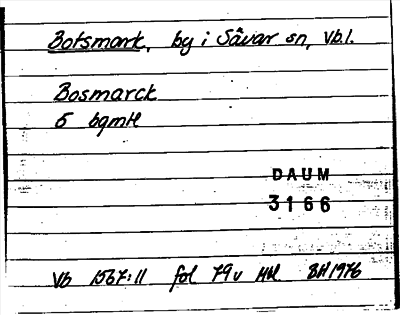 Botsmark, by i Sävar sn, Vb.l.
Bosmarck
5 bgmtl
DAUM
3166
Vb 1567:11 fol 79v Hkl BH 1976